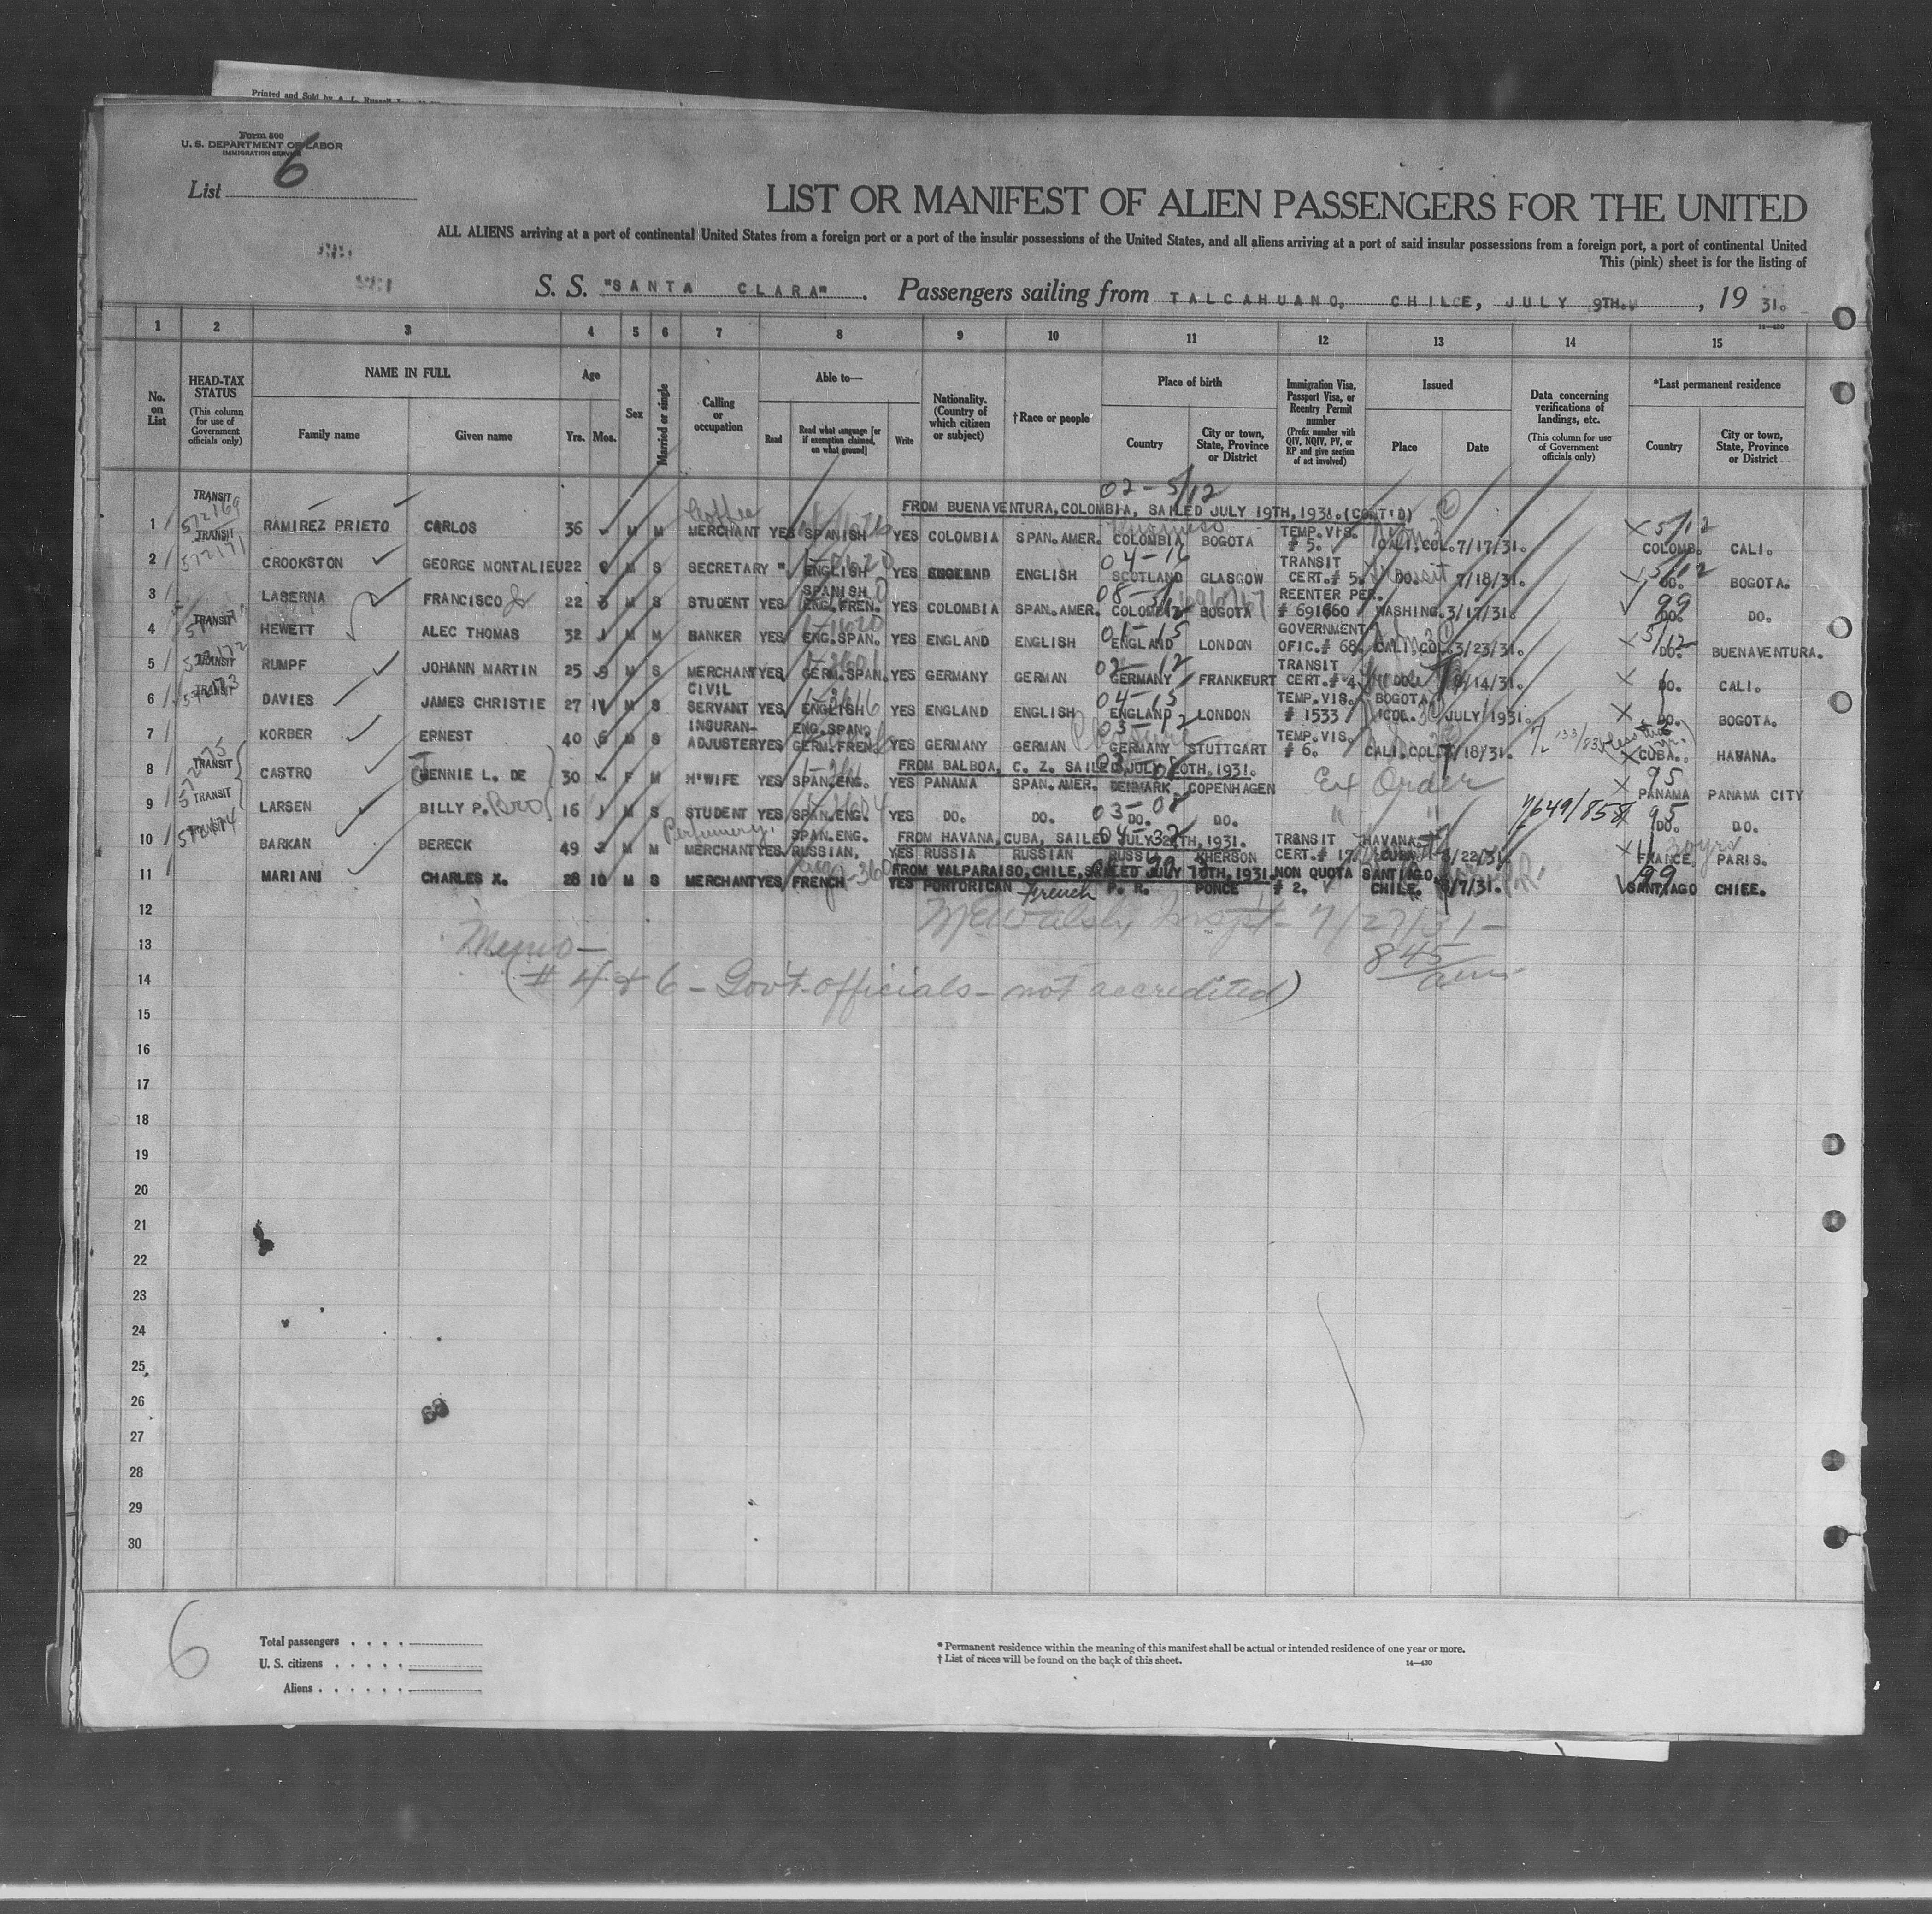 Printed and Sold by A. L. Russell
Form 500
U. S. DEPARTMENT OF LABOR
IMMIGRATION SERVICE
List 6
LIST OR MANIFEST OF ALIEN PASSENGERS FOR THE UNITED
ALL ALIENS arriving at a port of continental United States from a foreign port or a port of the insular possessions of the United States, and all aliens arriving at a port of said insular possessions from a foreign port, a port of continental United
This (pink) sheet is for the listing of
S. S. "SANTA CLARA". Passengers sailing from TALCAHUANO, CHILE, JULY 9TH., 19 31.
14—430
1 2 3 4 5 6 7 8 9 10 11 12 13 14 15
No. on List
HEAD-TAX STATUS (This column for use of Government officials only)
NAME IN FULL
Family name Given name
Age
Yrs. Mos.
Sex
Married or single
Calling or occupation
Able to—
Read Read what language [or if exemption claimed, on what ground] Write
Nationality. (Country of which citizen or subject)
†Race or people
Place of birth
Country City or town, State, Province or District
Immigration Visa, Passport Visa, or Reentry Permit number (Prefix number with QIV, NQIV, PV, or RP and give section of act involved)
Issued
Place Date
Data concerning verifications of landings, etc. (This column for use of Government officials only)
*Last permanent residence
Country City or town, State, Province or District
02-5/12
FROM BUENAVENTURA, COLOMBIA, SAILED JULY 19TH, 1931. (CONT'D)
1 TRANSIT 572169 RAMIREZ PRIETO CARLOS 36 M M Coffee MERCHANT YES SPANISH YES COLOMBIA SPAN. AMER. COLOMBIA BOGOTA TEMP. VIS. # 5. CALI. COL. 7/17/31. 5/12 COLOMB. CALI.
2 TRANSIT 572171 CROOKSTON GEORGE MONTALIEU 22 M S SECRETARY " ENGLISH YES ENGLAND ENGLISH 04-16 SCOTLAND GLASGOW TRANSIT CERT. # 5. DO. 7/18/31. 5/12 DO. BOGOTA.
3 LASERNA FRANCISCO Jr 22 M S STUDENT YES SPANISH ENG. FREN. YES COLOMBIA SPAN. AMER. COLOMBIA BOGOTA REENTER PER. # 691660 WASHING. 3/17/31. 99 DO. DO.
4 TRANSIT HEWETT ALEC THOMAS 32 M M BANKER YES ENG. SPAN. YES ENGLAND ENGLISH 01-15 ENGLAND LONDON GOVERNMENT OFIC. # 68. CALI. COL. 3/23/31. 5/12 DO. BUENAVENTURA.
5 TRANSIT 572172 RUMPF JOHANN MARTIN 25 9 M S MERCHANT YES GERM. SPAN. YES GERMANY GERMAN 02-12 GERMANY FRANKFURT TRANSIT CERT. # 4. DO. /14/31. DO. CALI.
6 TRANSIT DAVIES JAMES CHRISTIE 27 M S CIVIL SERVANT YES ENGLISH YES ENGLAND ENGLISH 04-15 ENGLAND LONDON TEMP. VIS. # 1533 BOGOTA COL. JULY/1931. DO. BOGOTA.
7 KORBER ERNEST 40 M S INSURAN- ADJUSTER YES ENG. SPAN. GERM. FREN. YES GERMANY GERMAN 03-12 GERMANY STUTTGART TEMP. VIS. # 6. CALI. COL. /18/31. CUBA. HAVANA.
FROM BALBOA, C. Z. SAILED JULY 20TH. 1931.
8 TRANSIT CASTRO JENNIE L. DE 30 F M H'WIFE YES SPAN. ENG. YES PANAMA SPAN. AMER. DENMARK COPENHAGEN Ex Order 95 PANAMA PANAMA CITY
9 TRANSIT LARSEN BILLY P. Bro 16 M S STUDENT YES SPAN. ENG. YES DO. DO. 03-08 DO. DO. " " 7/649/858 95 DO. DO.
FROM HAVANA, CUBA, SAILED JULY TH, 1931.
10 572174 BARKAN BERECK 49 M M Perfumery MERCHANT YES SPAN. ENG. RUSSIAN, YES RUSSIA RUSSIAN RUSSIA KHERSON TRANSIT CERT. # 17 HAVANA CUBA /22/31 FRANCE. PARIS.
FROM VALPARAISO, CHILE, SAILED JULY 10TH, 1931.
11 MARIANI CHARLES X. 28 10 M S MERCHANT YES FRENCH YES PORTORICAN French P. R. PONCE NON QUOTA # 2. SANTIAGO. CHILE. /7/31. 99 SANTIAGO CHIEE.
12
13
14
15
16
17
18
19
20
21
22
23
24
25
26
27
28
29
30
Walsh, Inspt- 7/27/31-
845 am
Memo-
(# 4 & 6 - Gov't officials - not accredited)
6
Total passengers . . . .
U. S. citizens . . . . .
Aliens . . . . . .
* Permanent residence within the meaning of this manifest shall be actual or intended residence of one year or more.
† List of races will be found on the back of this sheet.
14—430